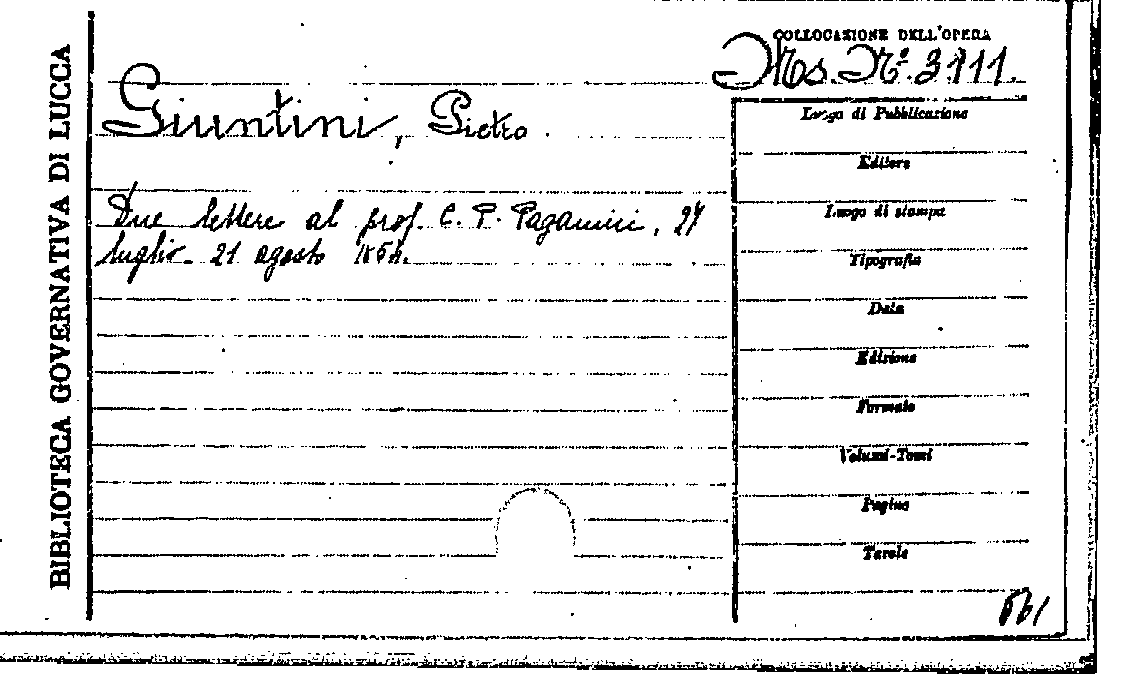 BIBLIOTECA GOVERNATIVA DI LUCCA
COLLOCAZIONE DELL'OPERA
Ms. Nº. 3111.
Giuntini, Pietro.
Due lettere al prof. C. P. Paganini, 27
luglio - 21 agosto
Luogo di Pubblicazione
Editore
Luogo di stampa
Tipografia
Data
Edizione
Formato
Volumi-Tomi
Pagine
Tavole